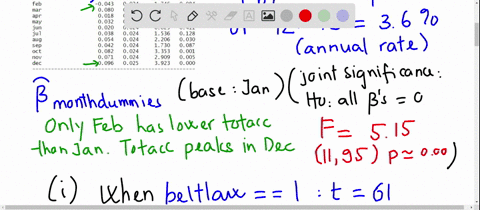 feb -0.043 0.024
mar 0.080
apr 0.018
may 0.032
jun 0.020
jul 0.038 0.024 1.536 0.128
aug 0.054 0.024 2.206 0.030
sep 0.042 0.024 1.730 0.087
oct 0.082 0.024 3.353 0.001
nov 0.071 0.024 2.909 0.005
dec 0.096 0.025 3.923 0.000
= 3.6%
(annual rate)
β̂ monthdummies (base: Jan) (joint significance:
H0: all β's = 0
Only Feb has lower totacc
than Jan. Totacc peaks in Dec
F = 5.15
(11,95) p ≃ 0.00)
(i) When beltlaw == 1 : t = 61